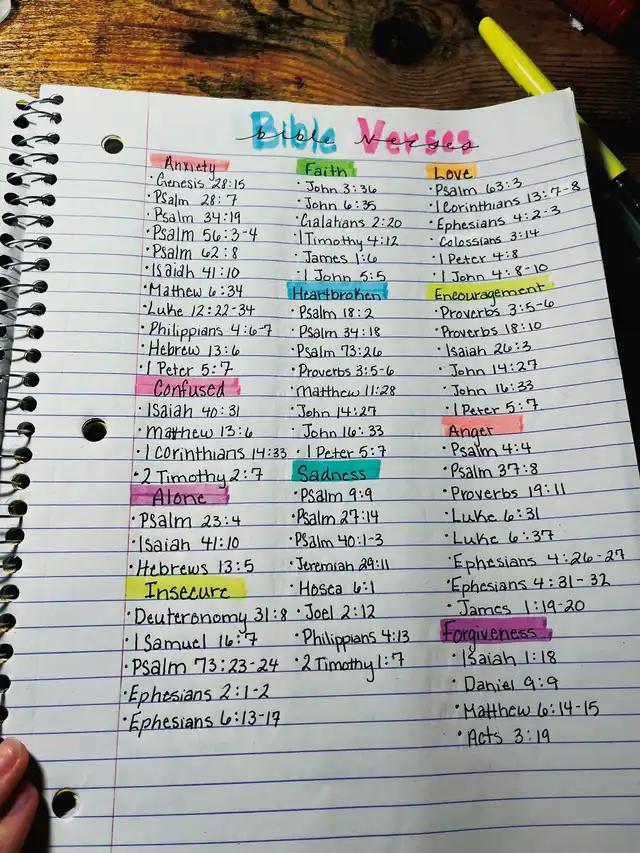 Bible Verses
bible Verses
Anxiety
• Genesis 28:15
Psalm 28:7
• Psalm 34:19
• Psalm 56:3-4
• Psalm 62:8
• Isaiah 41:10
• Mathew 6:34
• Luke 12:22-34
• Philippians 4:6-7
• Hebrew 13:6
• 1 Peter 5:7
Confused
• Isaiah 40:31
• Mathew 13:6
• 1 Corinthians 14:33
• 2 Timothy 2:7
Alone
• Psalm 23:4
• Isaiah 41:10
• Hebrews 13:5
Insecure
• Deuteronomy 31:8
• 1 Samuel 16:7
• Psalm 73:23-24
• Ephesians 2:1-2
• Ephesians 6:13-17
Faith
• John 3:36
• John 6:35
• Galatians 2:20
• 1 Timothy 4:12
• James 1:6
• 1 John 5:5
Heartbroken
• Psalm 18:2
• Psalm 34:18
• Psalm 73:26
• Proverbs 3:5-6
• Matthew 11:28
• John 14:27
• John 16:33
• 1 Peter 5:7
Sadness
• Psalm 9:9
• Psalm 27:14
• Psalm 40:1-3
• Jeremiah 29:11
• Hosea 6:1
• Joel 2:12
• Philippians 4:13
• 2 Timothy 1:7
Love
• Psalm 63:3
• 1 Corinthians 13:7-8
• Ephesians 4:2-3
• Colossians 3:14
• 1 Peter 4:8
• 1 John 4:8-10
Encouragement
• Proverbs 3:5-6
• Proverbs 18:10
• Isaiah 26:3
• John 14:27
• John 16:33
• 1 Peter 5:7
Anger
• Psalm 4:4
• Psalm 37:8
• Proverbs 19:11
• Luke 6:31
• Luke 6:37
• Ephesians 4:26-27
• Ephesians 4:31-32
• James 1:19-20
Forgiveness
• Isaiah 1:18
• Daniel 9:9
• Matthew 6:14-15
• Acts 3:19